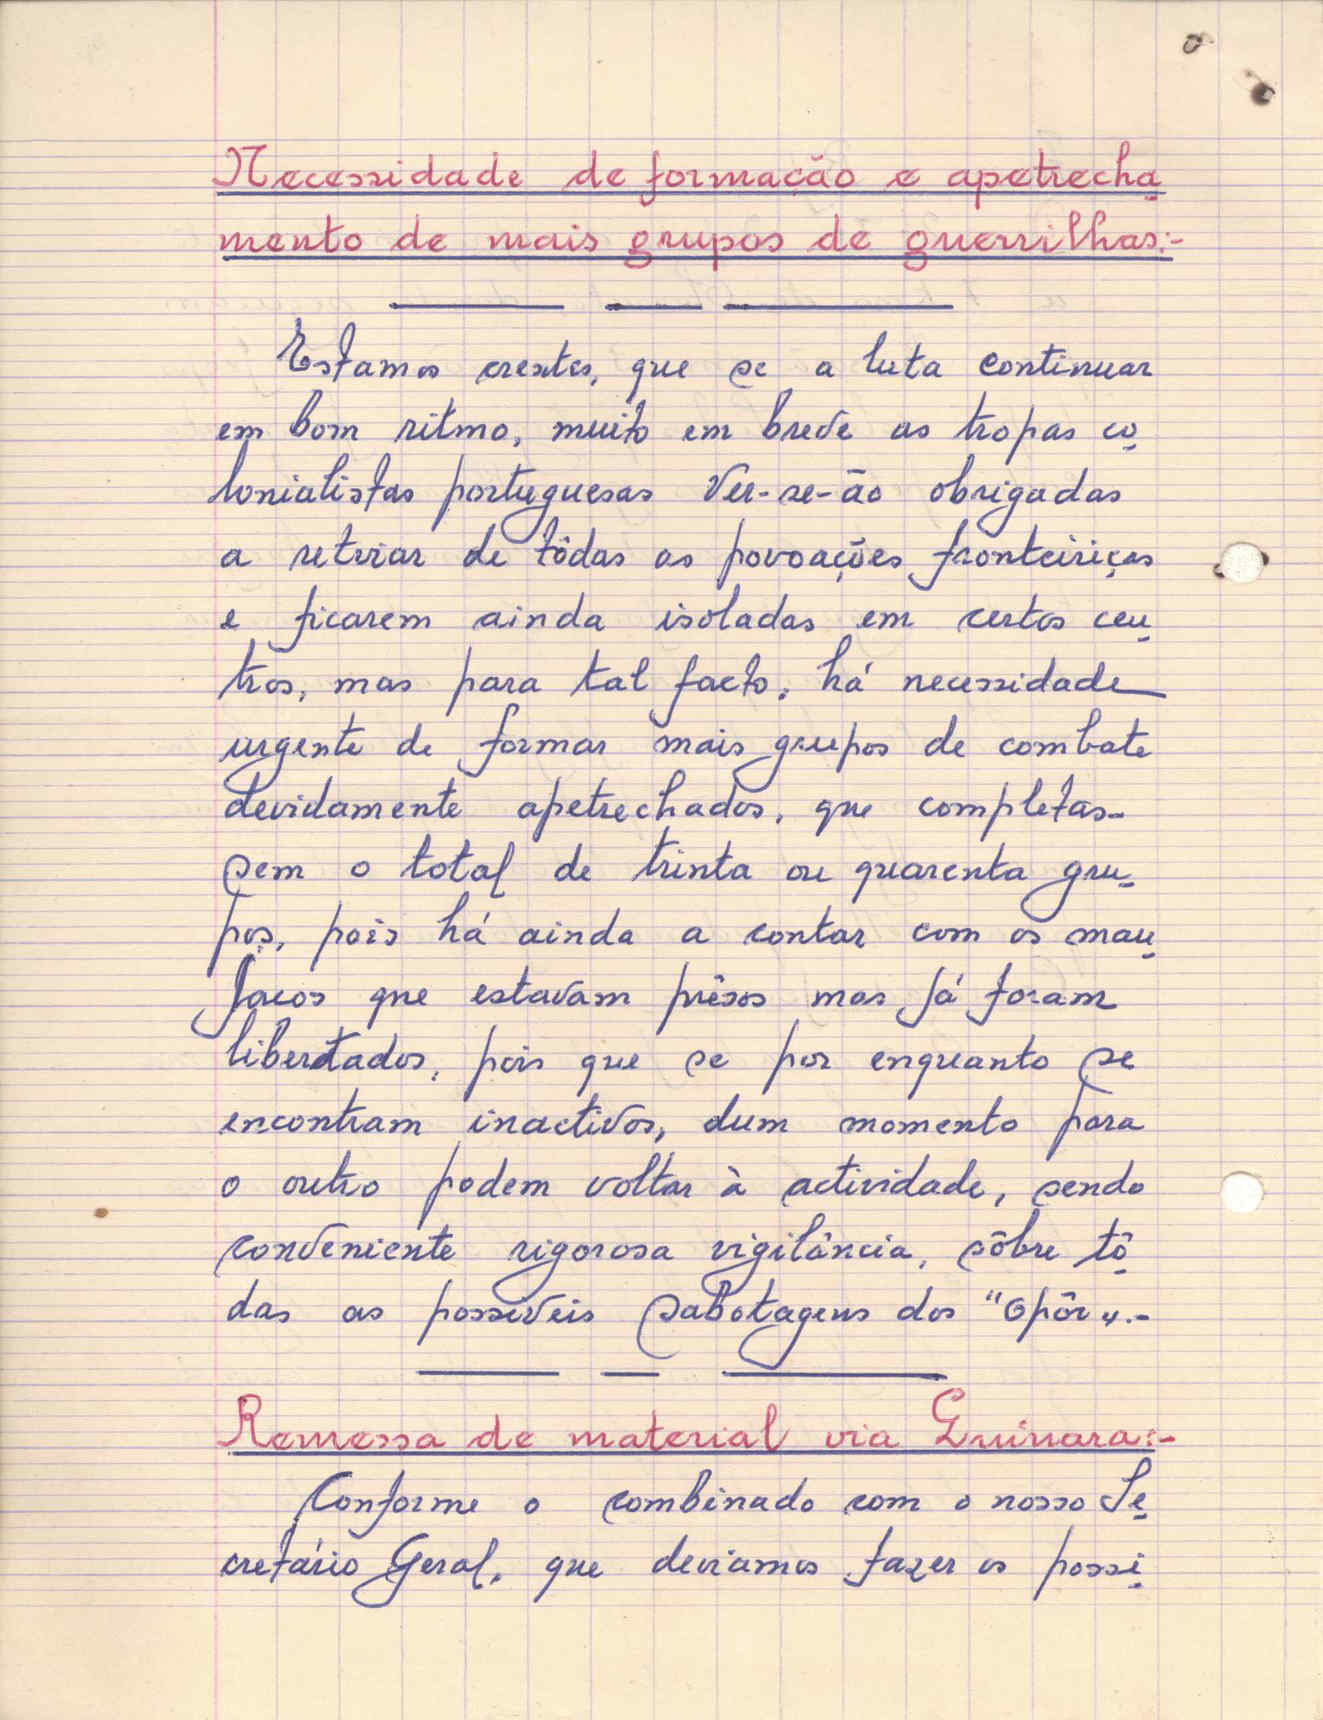 Necessidade de formação e apetrecha
mento de mais grupos de guerrilhas:-
Estamos crentes, que se a luta continuar
em bom ritmo, muito em breve as tropas co
lonialistas portuguesas ver-se-ão obrigadas
a retirar de tôdas as povoações fronteiriças
e ficarem ainda isoladas em certos cen
tros, mas para tal facto, há necessidade
urgente de formar mais grupos de combate
devidamente apetrechados, que completas-
sem o total de trinta ou quarenta gru-
pos, pois há ainda a contar com os man
jacos que estavam prêsos mas já foram
libertados, pois que se por enquanto se
encontram inactivos, dum momento para
o outro podem voltar à actividade, sendo
conveniente rigorosa vigilância, sôbre tô
das as possiveis sabotagens dos "opôr".-
Remessa de material via Guinara:-
Conforme o combinado com o nosso Se
cretário Geral, que deviamos fazer os possi